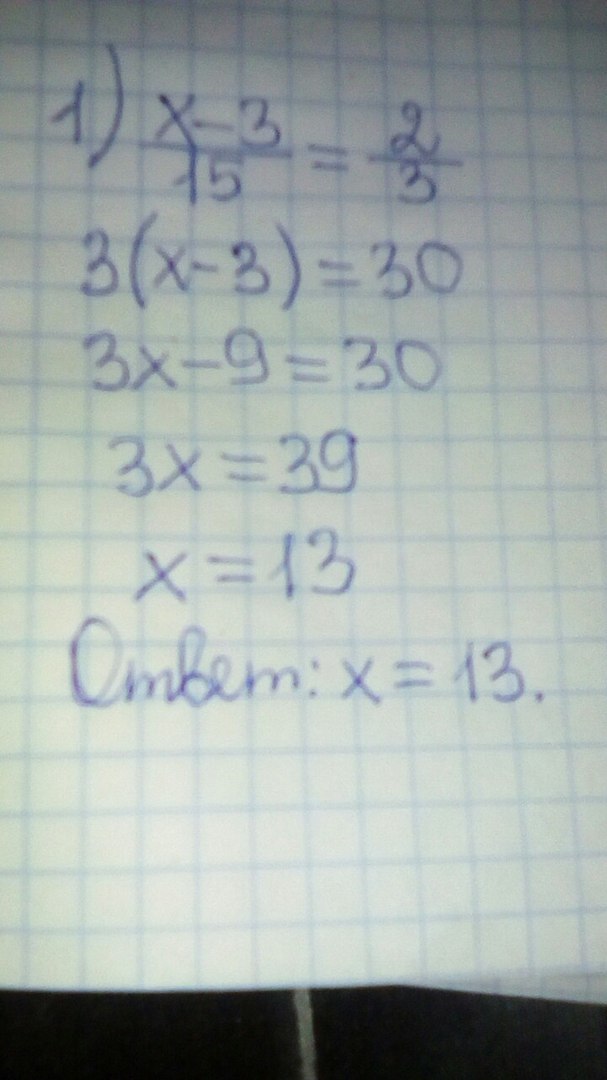 1) x-3/15 = 2/3
3(x-3)=30
3x-9=30
3x=39
x=13
Ответ: x=13.